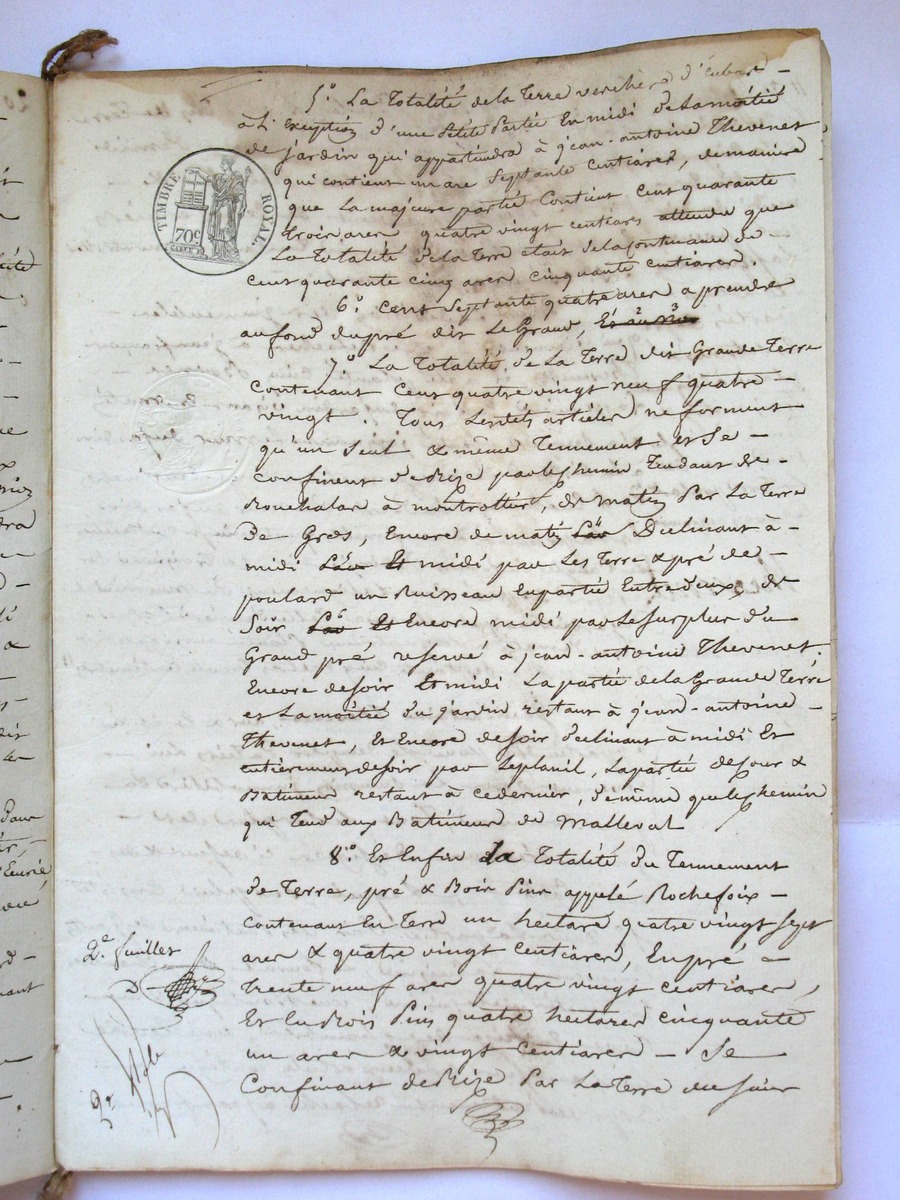 5.º La Totalité de la Terre verchere d'
à L'exception d'une Petite Partie En midi de La moitié
de jardin qui appartiendra à jean-antoine Thevenet
qui contient un are Septante Centiares, de maniere
que La majeure partie Contient Cent quarante
trois ares quatre vingt centiares attendu que
La Totalité de la Terre était de la Contenance de
cent quarante cinq ares cinquante centiares.
6.º cent Septante quatre ares a prendre
au fond du pré dit Le Grand,
7.º La Totalité de La Terre dit Grande Terre
contenant Cent quatre vingt neuf quatre
vingt. Tous Lesdits articles ne forment
qu'un Seul & même Tennement et Se
confinent de Bize par le chemin Tendant de
Rouchalon à montrottier, de matin Par La Terre
de Gros, Encore de matin Déclinant à
midi Et midi par Les Terre & pré de
poulard un Ruisseau En partie Entredeux, de
Soir Et Encore midi par Le Surplus du
Grand pré reservé à jean-antoine Thevenet.
Encore de soir Et midi La partie de la Grande Terre
et La moitié du jardin restant à jean-antoine
Thevenet, Et Encore de soir déclinant à midi Et
entierement de soir par Le La partie de Cour &
Batiment restant à ce dernier, de même que le chemin
qui Tend aux Batiment de Malleval
8.º Et Enfin la Totalité du Tennement
de Terre, pré & Bois Pins appelé Rochefoix
contenant En Terre un hectare quatre vingt Sept
ares & quatre vingt Centiares, En pré
trente neuf ares quatre vingt centiares,
Et En Bois Pins quatre hectares cinquante
un ares & vingt Centiares Se
Confinant de Bize Par La Terre du Sieur
TIMBRE ROYAL
70c
2.e feuillet
2e